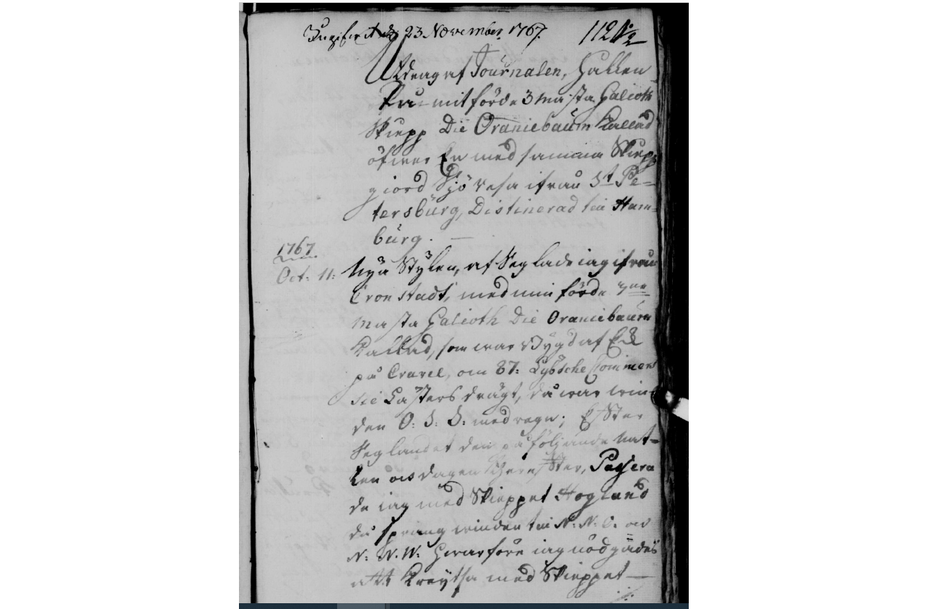 Ingifvet d. 23 November 1767. 1121 1/2
Utdrag af Journalen, hållen
På mitt förde 3 Masta Galioth
Skiepp Die Oraniebaum Kallad
öfwer En med samma Skiepp
giord Sjö resa ifrån St Pe-
tersbürg, Distinerad till Ham-
bürg.
1767.
Oct. 11: Nÿa Stÿlen, af Seglade iag ifrån
Cronstadt, med min förde
Masta Galioth Die Oraniebaum
Kallad, som war Bÿgd af Ek
på Cravel, om 87. Lÿbsche Commer
Lästers drägt, då war win-
den O. S. O. med regn; Efter
Seglandet den påföljande Nat-
ten och dagen Passera
de iag med Skieppet Hogland
då sprang winden till N. N. O. och
N. N. W. hwarföre iag nödgades
att Kreÿtsa med Skieppet